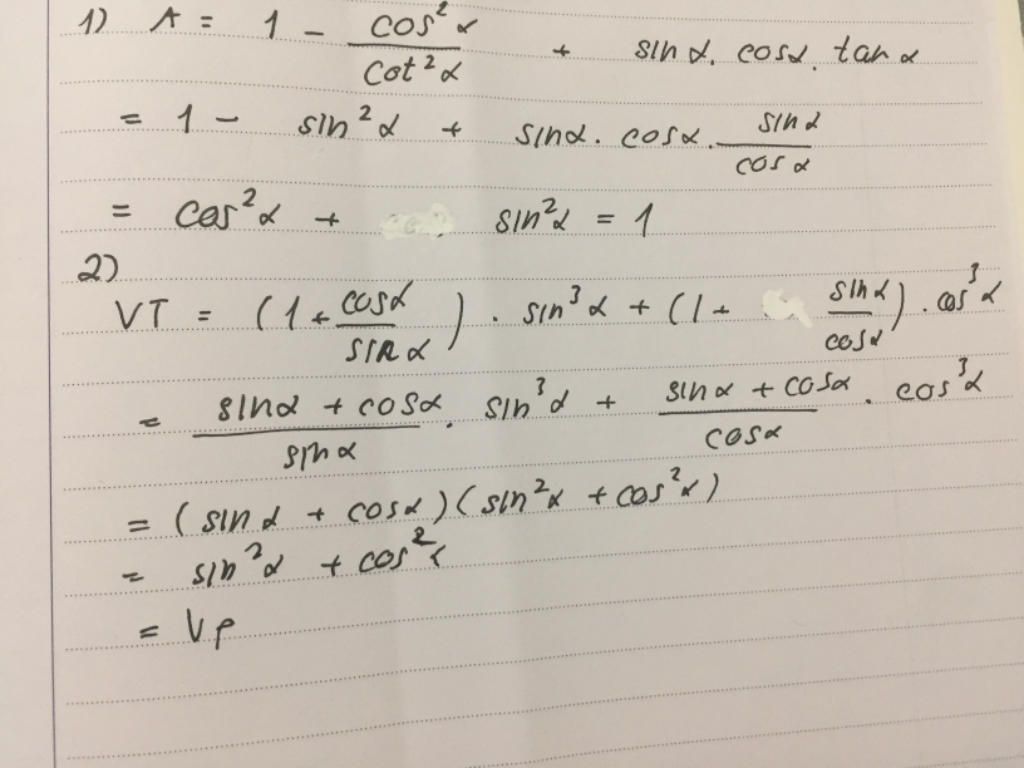 1) A = 1 - cos²α / cot²α + sinα. cosα. tanα
= 1 - sin²α + sinα. cosα. sinα / cosα
= cos²α + sin²α = 1
2)
VT = (1 + cosα / sinα) . sin³α + (1 + sinα / cosα) . cos³α
= sinα + cosα / sinα . sin³α + sinα + cosα / cosα . cos³α
= (sinα + cosα)(sin²α + cos²α)
= sin²α + cos²α
= VP